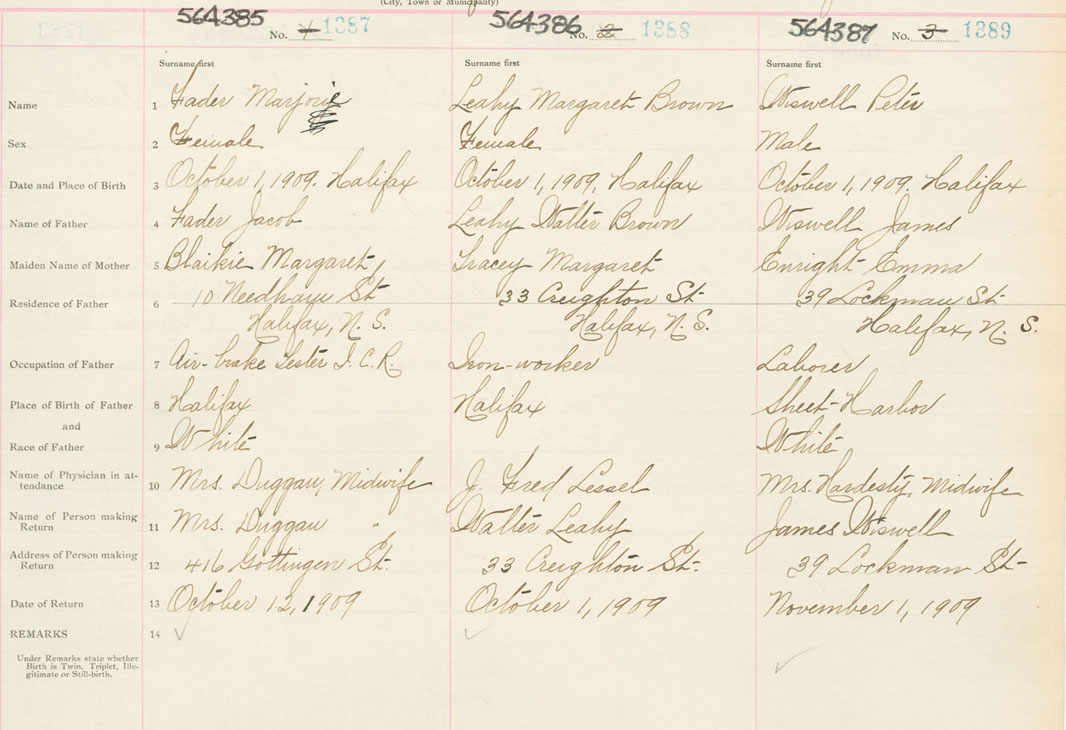 (City, Town or Municipality)
564385 No. 1 1387 564386 No. 2 1388 564387 No. 3 1389
Surname first Surname first Surname first
Name 1 Fader Marjorie Leahy Margaret Brown Wiswell Peter
Sex 2 Female Female Male
Date and Place of Birth 3 October 1, 1909. Halifax October 1, 1909, Halifax October 1, 1909. Halifax
Name of Father 4 Fader Jacob Leahy Walter Brown Wiswell James
Maiden Name of Mother 5 Blaikie Margaret Tracey Margaret Enright Emma
Residence of Father 6 10 Needham St 33 Creighton St 39 Lockman St
Halifax, N. S. Halifax, N. S. Halifax, N. S.
Occupation of Father 7 Air-brake Tester I. C. R. Iron-worker Laborer
Place of Birth of Father 8 Halifax Halifax Sheet-Harbor
and
Race of Father 9 White White
Name of Physician in at-
tendance 10 Mrs. Duggan, Midwife J. Fred Lessel Mrs. Hardesty, Midwife
Name of Person making
Return 11 Mrs. Duggan " Walter Leahy James Wiswell
Address of Person making
Return 12 416 Gottingen St. 33 Creighton St. 39 Lockman St
Date of Return 13 October 12, 1909 October 1, 1909 November 1, 1909
REMARKS 14
Under Remarks state whether
Birth is Twin, Triplet, Ille-
gitimate or Still-birth.